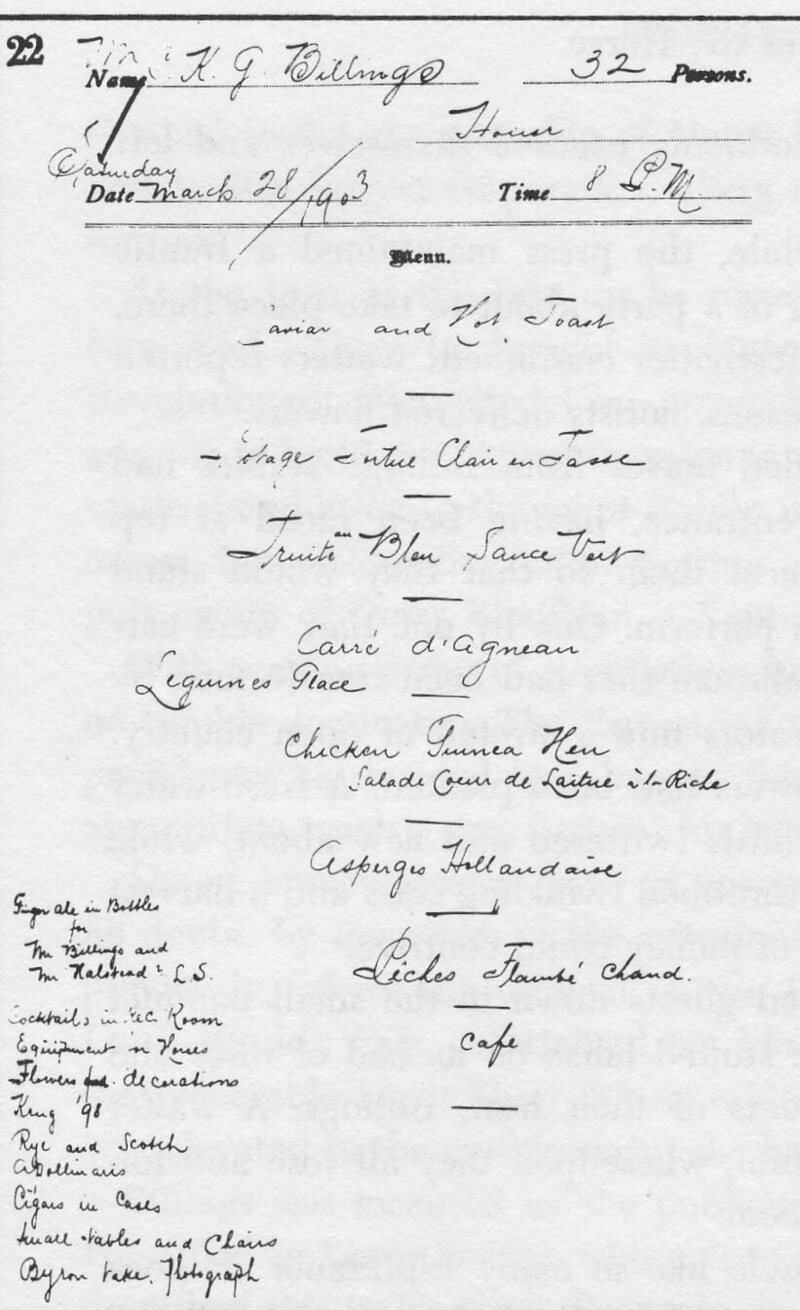 22
Name K. G. Billings 32 Persons.
House
Saturday
Date March 28/1903 Time 8 P.M.
Menu.
Caviar and Hot Toast
Potage Tortue Clair en Tasse
Truite au Bleu Sauce Vert
Carré d'Agneau
Legumes Glace
Chicken Guinea Hen
Salade Coeur de Laitue à la Riche
Asperges Hollandaise
Pêches Flambé Chaud.
Cafe
Ginger Ale in Bottles
for
Mr Billings and
Mr Halstead L.S.
Cocktails in Rec. Room
Equipment on Horses
Flowers decorations
Krug '98
Rye and Scotch
Apollinaris
Cigars in Cases
Small tables and Chairs
Byron take. Photograph